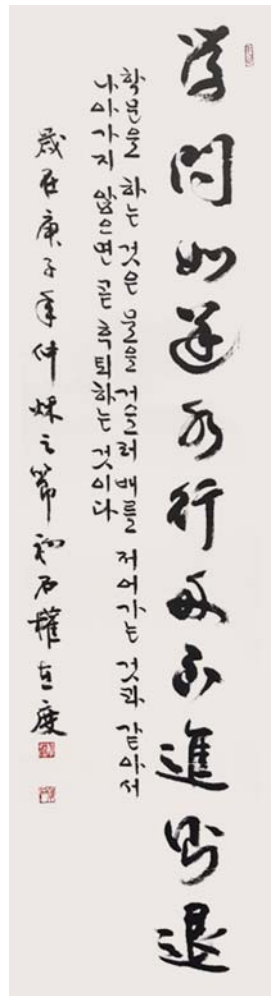 学問如逆水行舟不進則退
학문을 하는 것은 물을 거슬러 배를 저어가는 것과 같아서
나아가지 않으면 곧 후퇴하는 것이다
歲在庚子年仲秋之節